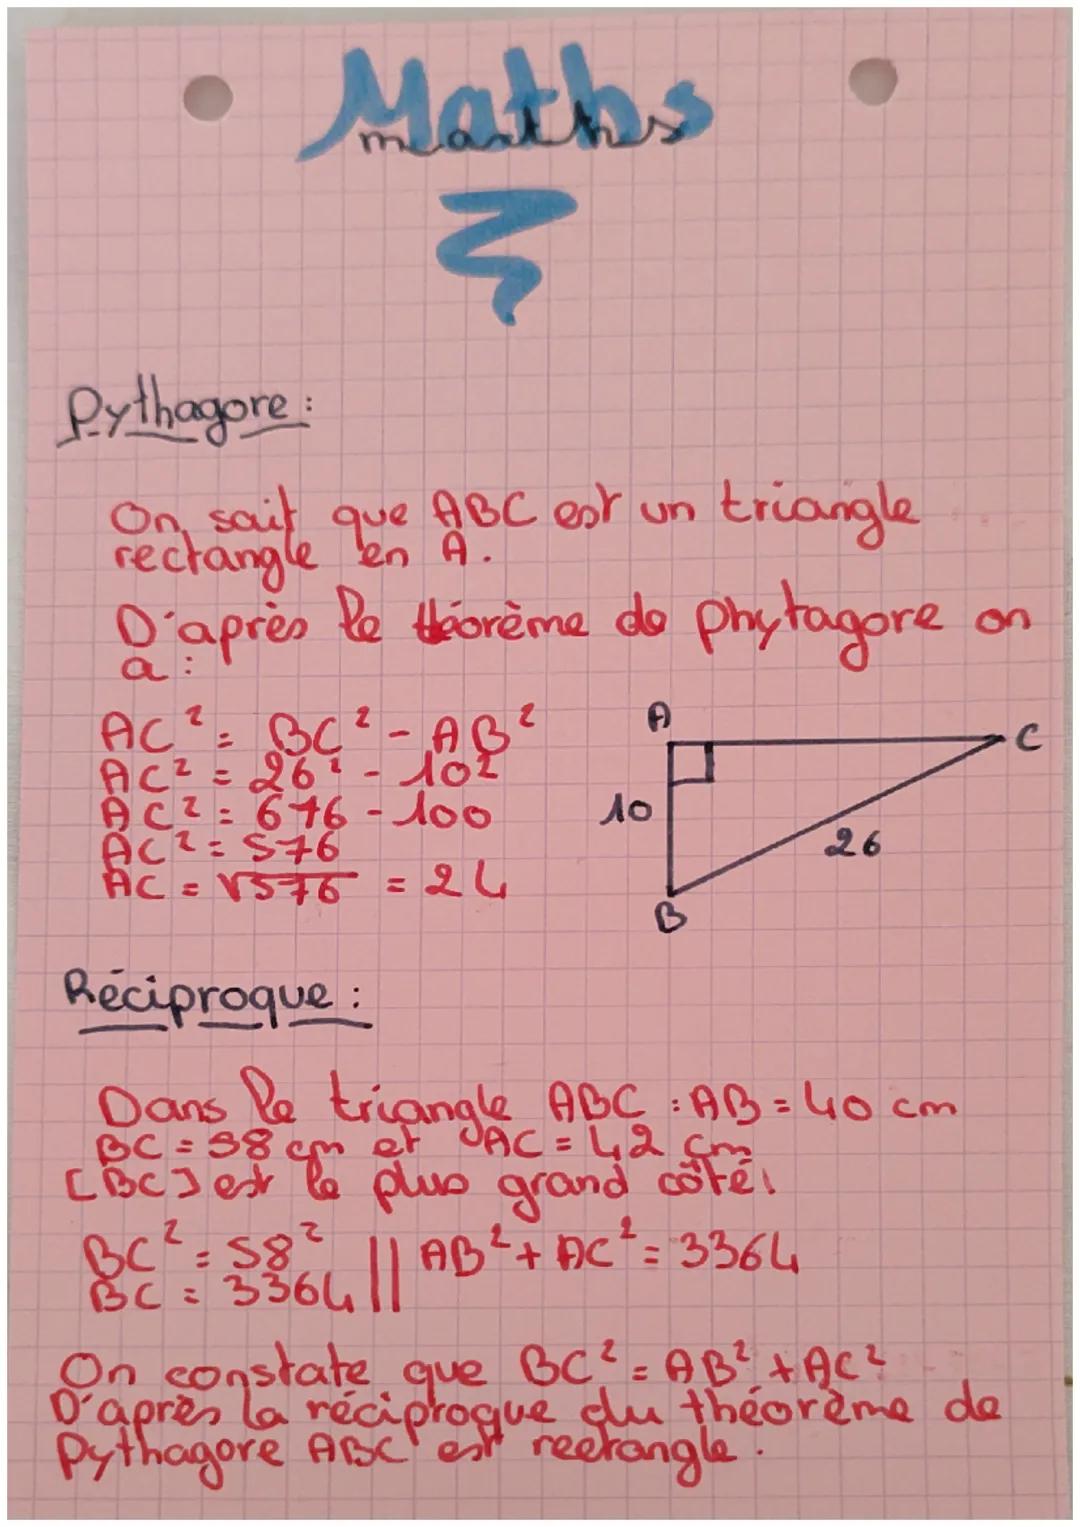 Maths
maths
Pythagore :
On sait que ABC est un triangle
rectangle en A.
D'après le théorème de Phytagore on
a :
AC² = BC² - AB²
AC² = 26² - 10²
AC² = 676 - 100
AC² = 576
AC = √576 = 24
A
C
10
26
B
Réciproque :
Dans le triangle ABC : AB = 40 cm
BC = 58 cm et AC = 42 cm
[BC] est le plus grand côté.
BC² = 58² || AB² + AC² = 3364
BC = 3364
On constate que BC² = AB² + AC²
D'après la réciproque du théorème de
Pythagore ABC est rectangle.